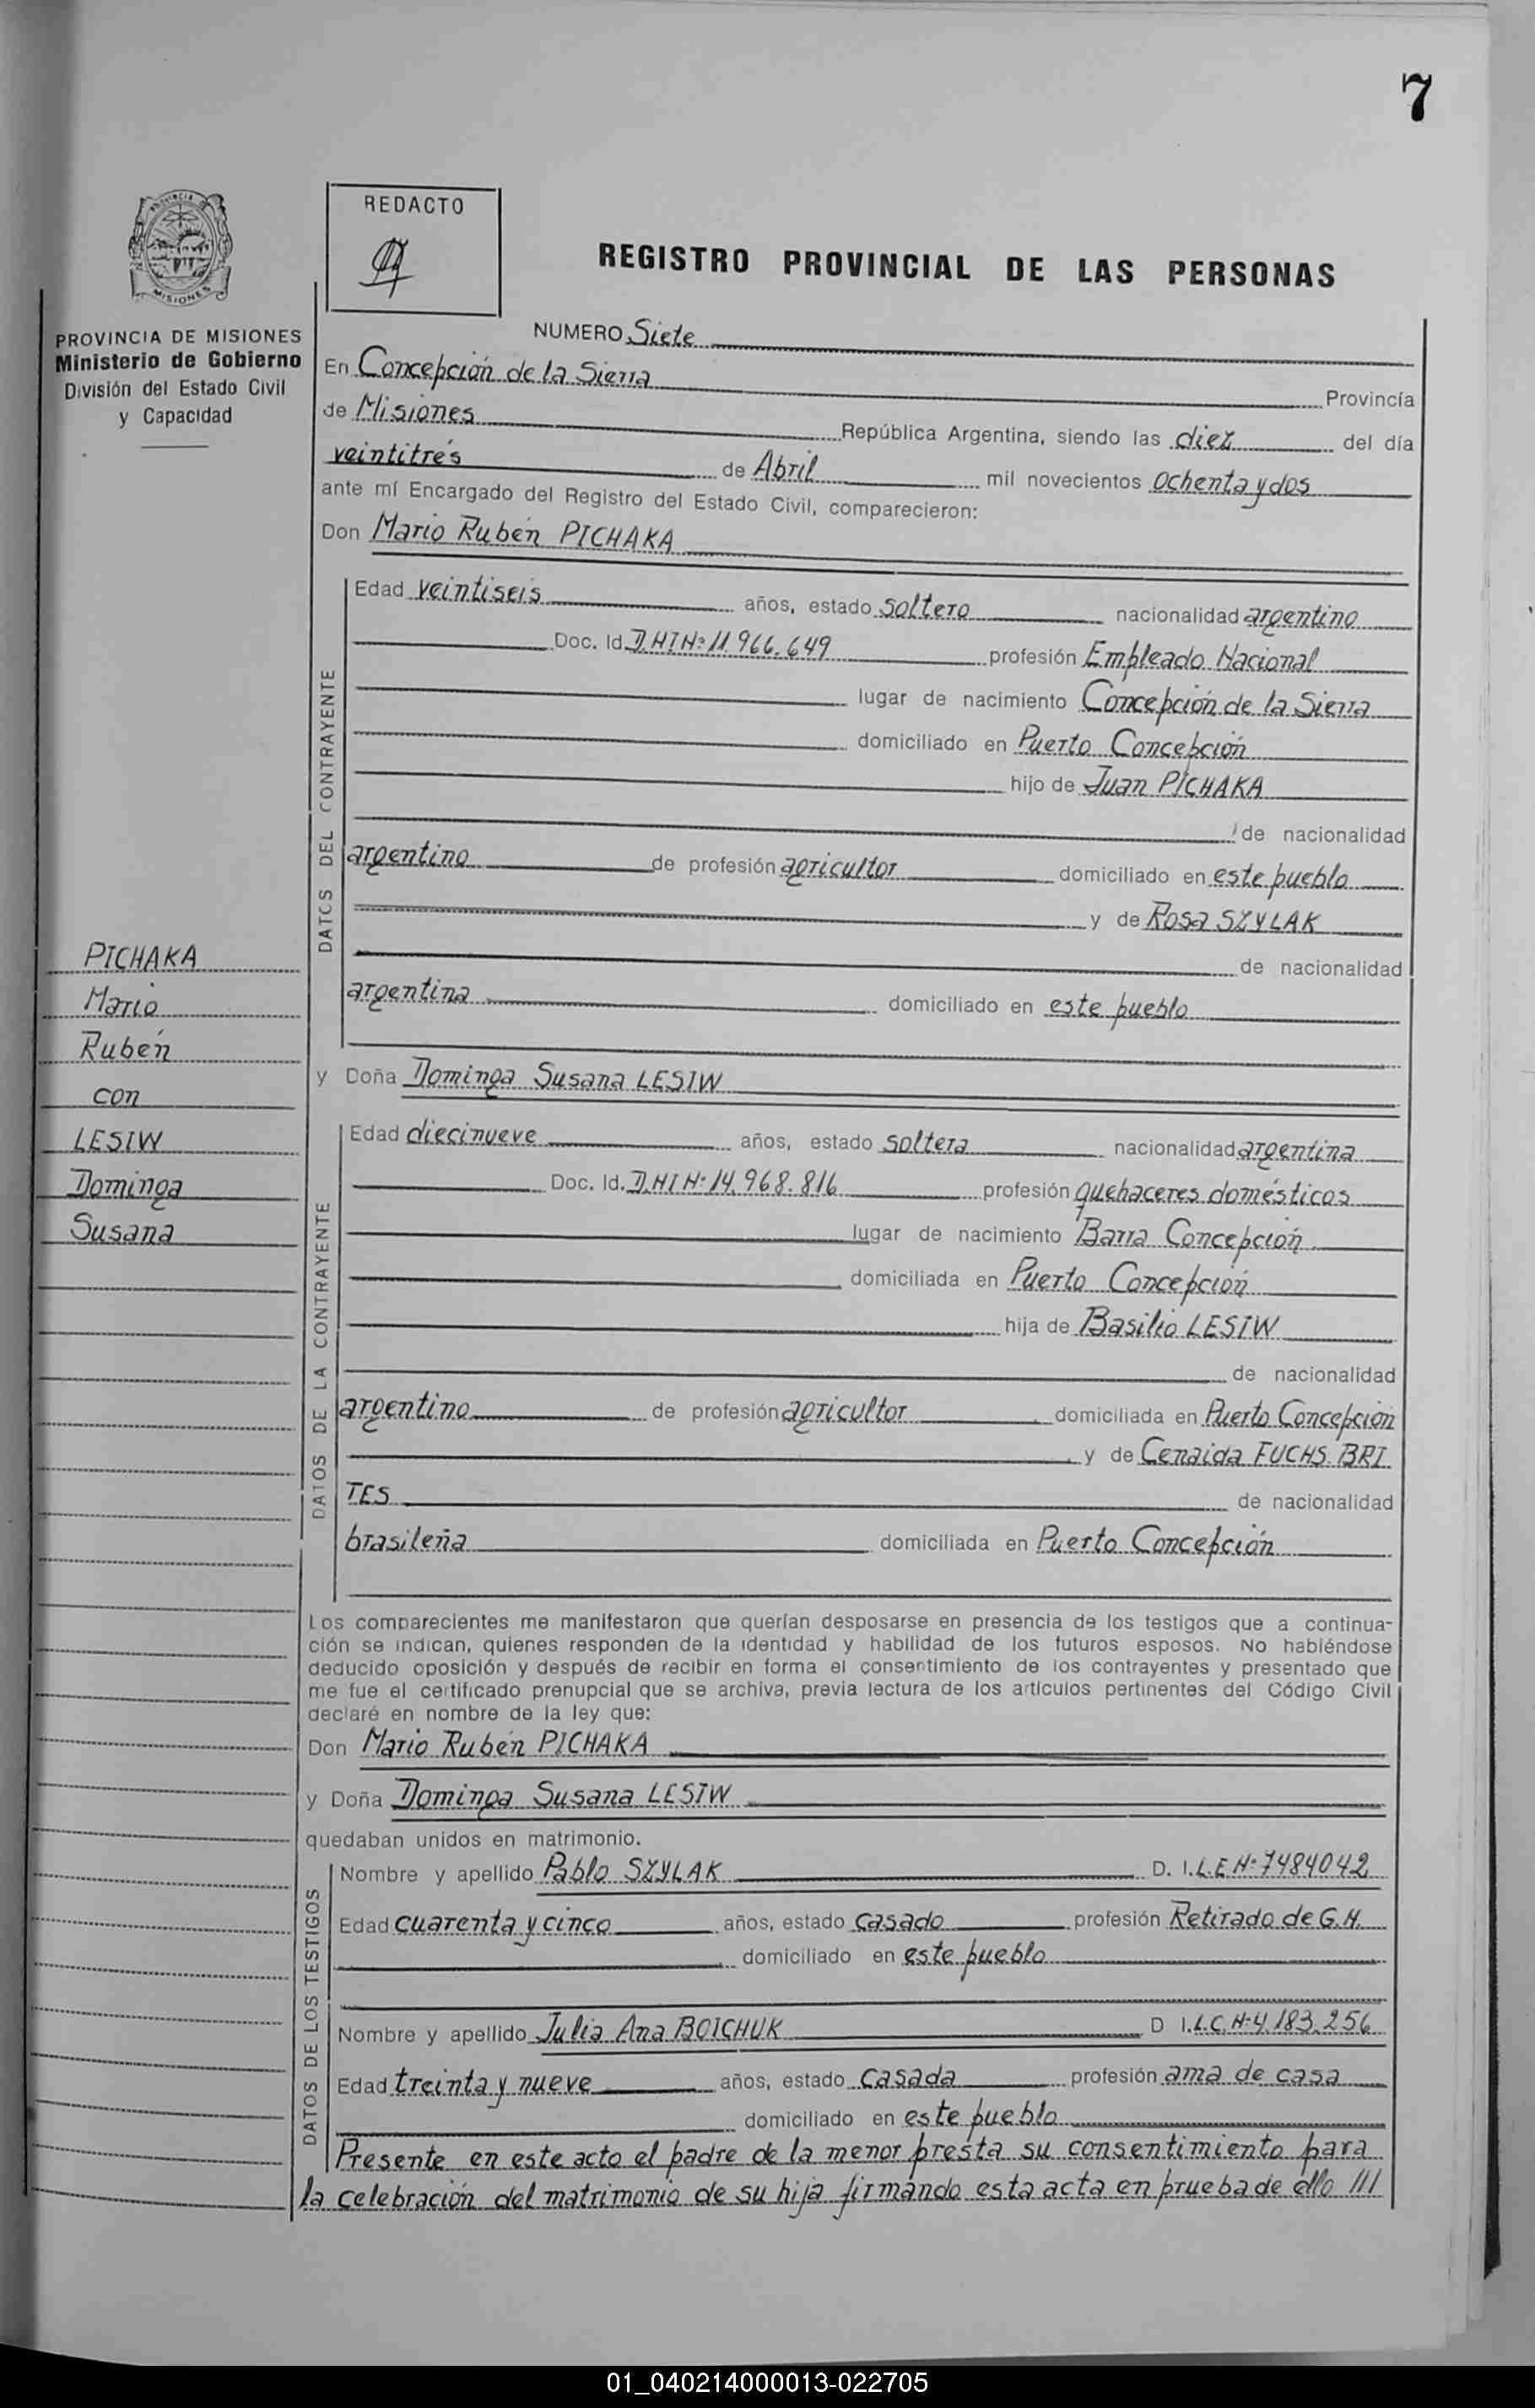 7
REDACTO
REGISTRO PROVINCIAL DE LAS PERSONAS
PROVINCIA DE MISIONES
Ministerio de Gobierno
División del Estado Civil
y Capacidad
PICHAKA
Mario
Rubén
con
LESIW
Dominga
Susana
NUMERO Siete
En Concepción de la Sierra Provincía
de Misiones República Argentina, siendo las diez del día
veintitrés de Abril mil novecientos ochenta y dos
ante mí Encargado del Registro del Estado Civil, comparecieron:
Don Mario Rubén PICHAKA
DATOS DEL CONTRAYENTE
Edad veintiseis años, estado soltero nacionalidad argentino
Doc. Id. D.N.I Nº 11.966.649 profesión Empleado Nacional
lugar de nacimiento Concepción de la Sierra
domiciliado en Puerto Concepción
hijo de Juan PICHAKA
de nacionalidad
argentino de profesión agricultor domiciliado en este pueblo
y de Rosa SZYLAK
de nacionalidad
argentina domiciliado en este pueblo
y Doña Dominga Susana LESIW
DATOS DE LA CONTRAYENTE
Edad diecinueve años, estado soltera nacionalidad argentina
Doc. Id. D.N.I Nº 14.968.816 profesión quehaceres domésticos
lugar de nacimiento Barra Concepción
domiciliada en Puerto Concepción
hija de Basilio LESIW
de nacionalidad
argentino de profesión agricultor domiciliada en Puerto Concepción
y de Cenaida FUCHS BRI
TES de nacionalidad
brasileña domiciliada en Puerto Concepción
Los comparecientes me manifestaron que querían desposarse en presencia de los testigos que a continua-
ción se indican, quienes responden de la identidad y habilidad de los futuros esposos. No habiéndose
deducido oposición y después de recibir en forma el consentimiento de los contrayentes y presentado que
me fue el certificado prenupcial que se archiva, previa lectura de los artículos pertinentes del Código Civil
declaré en nombre de la ley que:
Don Mario Rubén PICHAKA
y Doña Dominga Susana LESIW
quedaban unidos en matrimonio.
DATOS DE LOS TESTIGOS
Nombre y apellido Pablo SZYLAK D. I. L.E.Nº 7484042
Edad cuarenta y cinco años, estado casado profesión Retirado de G.N.
domiciliado en este pueblo
Nombre y apellido Julia Ana BOICHUK D I. L.C. Nº 4.183.256
Edad treinta y nueve años, estado casada profesión ama de casa
domiciliado en este pueblo
Presente en este acto el padre de la menor presta su consentimiento para
la celebración del matrimonio de su hija firmando esta acta en prueba de ello ///
01_040214000013-022705